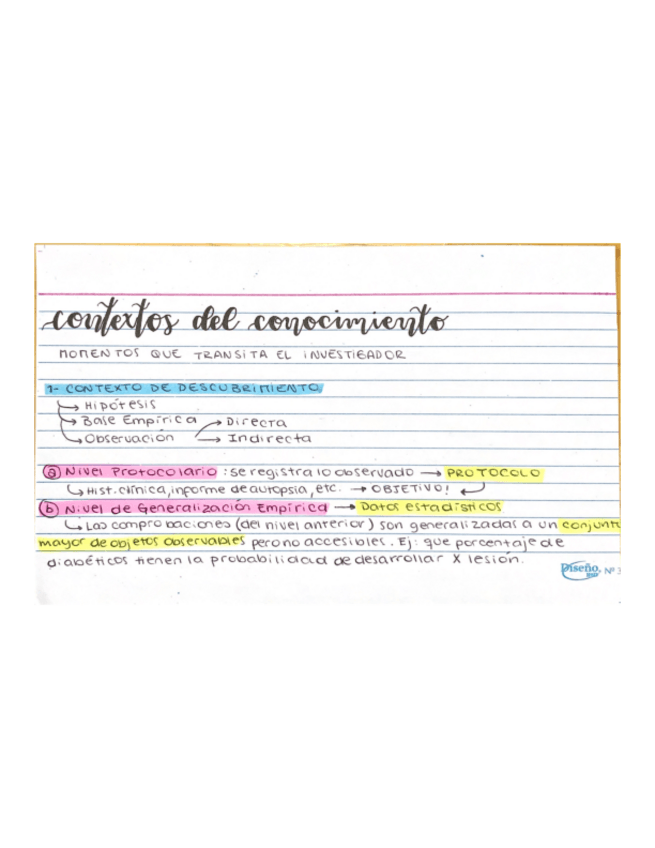 contextos del conocimiento
MOMENTOS QUE TRANSITA EL INVESTIGADOR
1- CONTEXTO DE DESCUBRIMIENTO
→ Hipótesis
→ Base Empírica → Directa
→ Observación → Indirecta
ⓐ Nivel Protocolario : se registra lo observado → PROTOCOLO
↳ Hist. clínica, informe de autopsia, etc. → OBJETIVO! ↲
ⓑ Nivel de Generalización Empírica → Datos estadísticos
↳ Las comprobaciones (del nivel anterior) son generalizadas a un conjunto
mayor de objetos observables pero no accesibles. Ej: que porcentaje de
diabéticos tienen la probabilidad de desarrollar X lesión.
Diseño. Nº 3